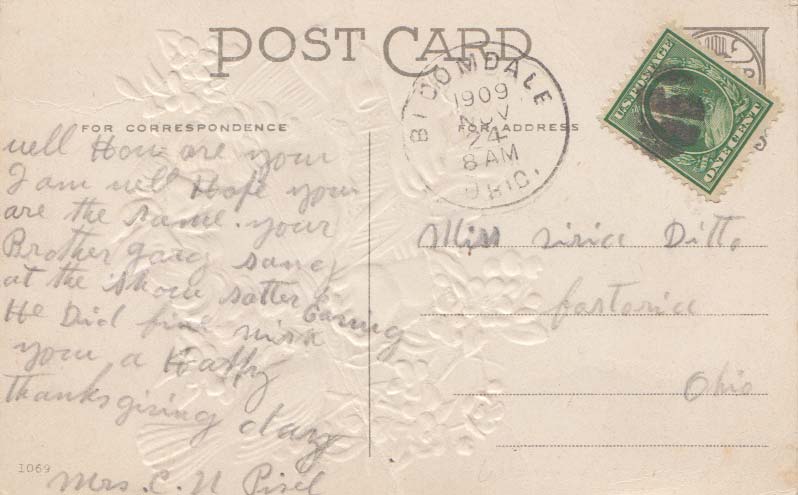 POST CARD
BLOOMDALE
1909
NOV
24
8 AM
OHIO.
U.S. POSTAGE
ONE CENT
FOR CORRESPONDENCE
FOR ADDRESS
well How are your
I am well Hope your
are the same. your
Brother gary sang
at the Show satter
Eavning
He Did fine wish
your a Happy
thanksgiving day
Mrs. C. N Pisel
Miss Ditto
fostoria
Ohio
1069